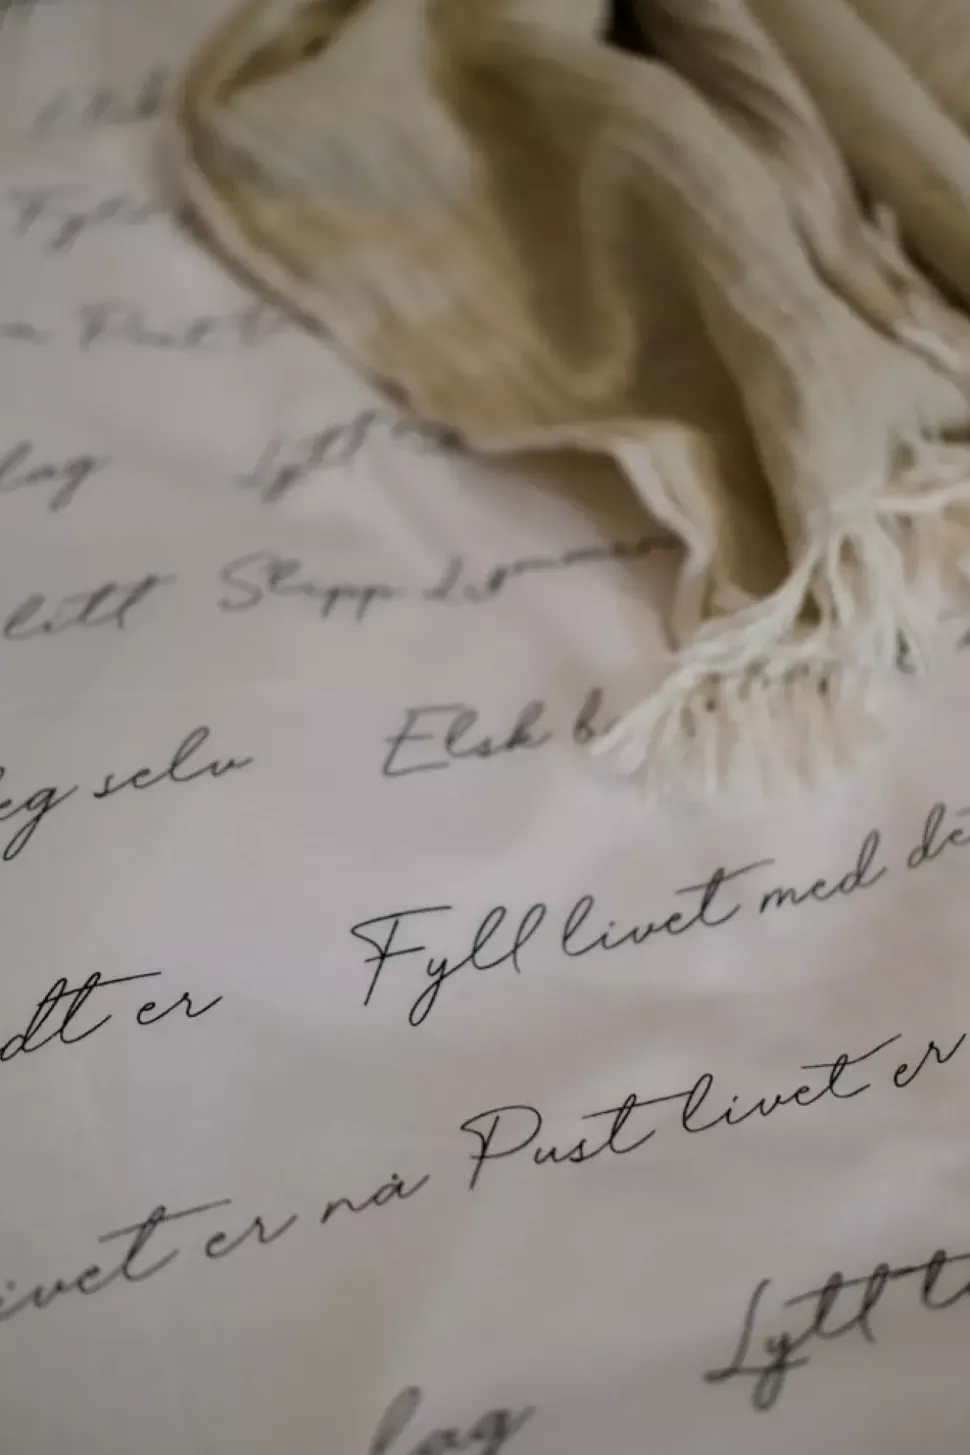 Elsk
Fyll
Pust
lag Lytt
litt Slipp drømmen
eg selv Elsk
dt er Fyll livet med de
ivet er nå Pust livet er
Lytt
lag